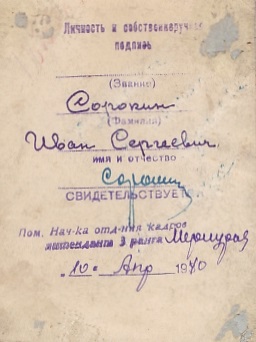 Личность и собственноручная
подпись
(Звание)
Сорокин
(Фамилия)
Иван Сергеевич
имя и отчество
Сорокин
СВИДЕТЕЛЬСТВУЕТ
Пом. Нач-ка отд-ния кадров
интенданта 3 ранга
10 Апр 1940